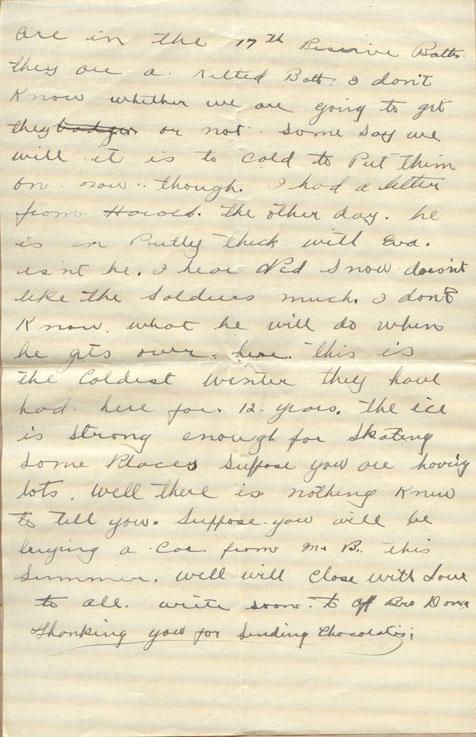 are in the 17th Reserve Batt.
they are a Kilted Batt. I don't
Know whether we are going to get
they badges or not. some say we
will it is to cold to Put them
on now though. I had a letter
from Harold. the other day. he
is in Pretty thick with Eva.
isn't he. I hear Ned Snow doesn't
like the Soldiers much. I don't
Know. what he will do when
he gets over. here. this is
the Coldest winter they have
had here for 12 years. the ice
is strong enough for Skating
Some Places Suppose you are having
lots. Well there is nothing Knew
to tell you. Suppose you will be
buying a Car from Mr B. this
Summer. well will Close with Love
to all. write soon. Bro Dona
Thanking you for Sending Chocolates;